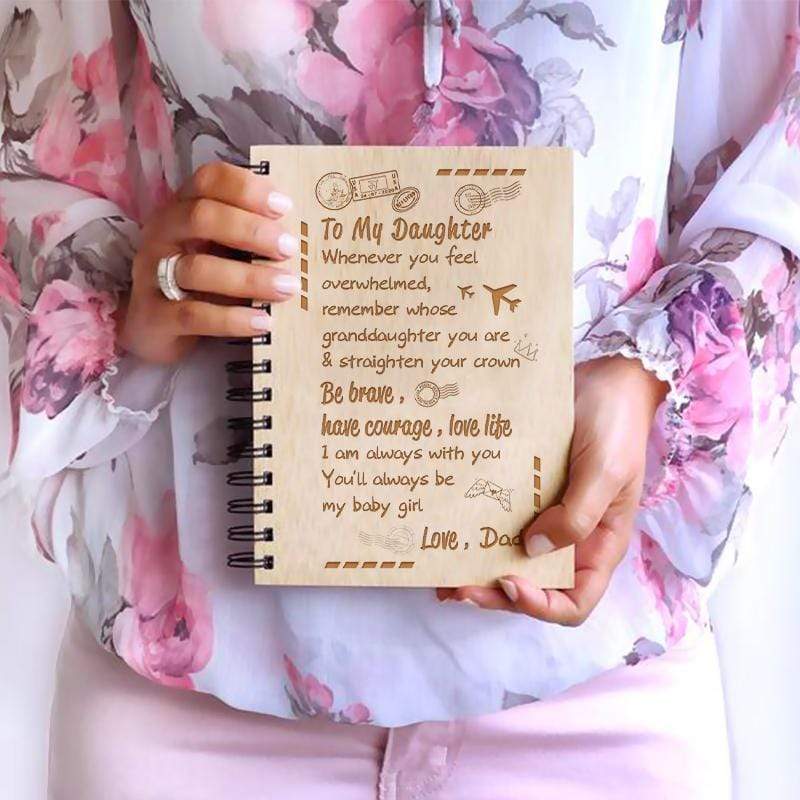 To My Daughter
Whenever you feel
overwhelmed,
remember whose
granddaughter you are
& straighten your crown
Be brave ,
have courage , love life
I am always with you
You'll always be
my baby girl
Love , Dad